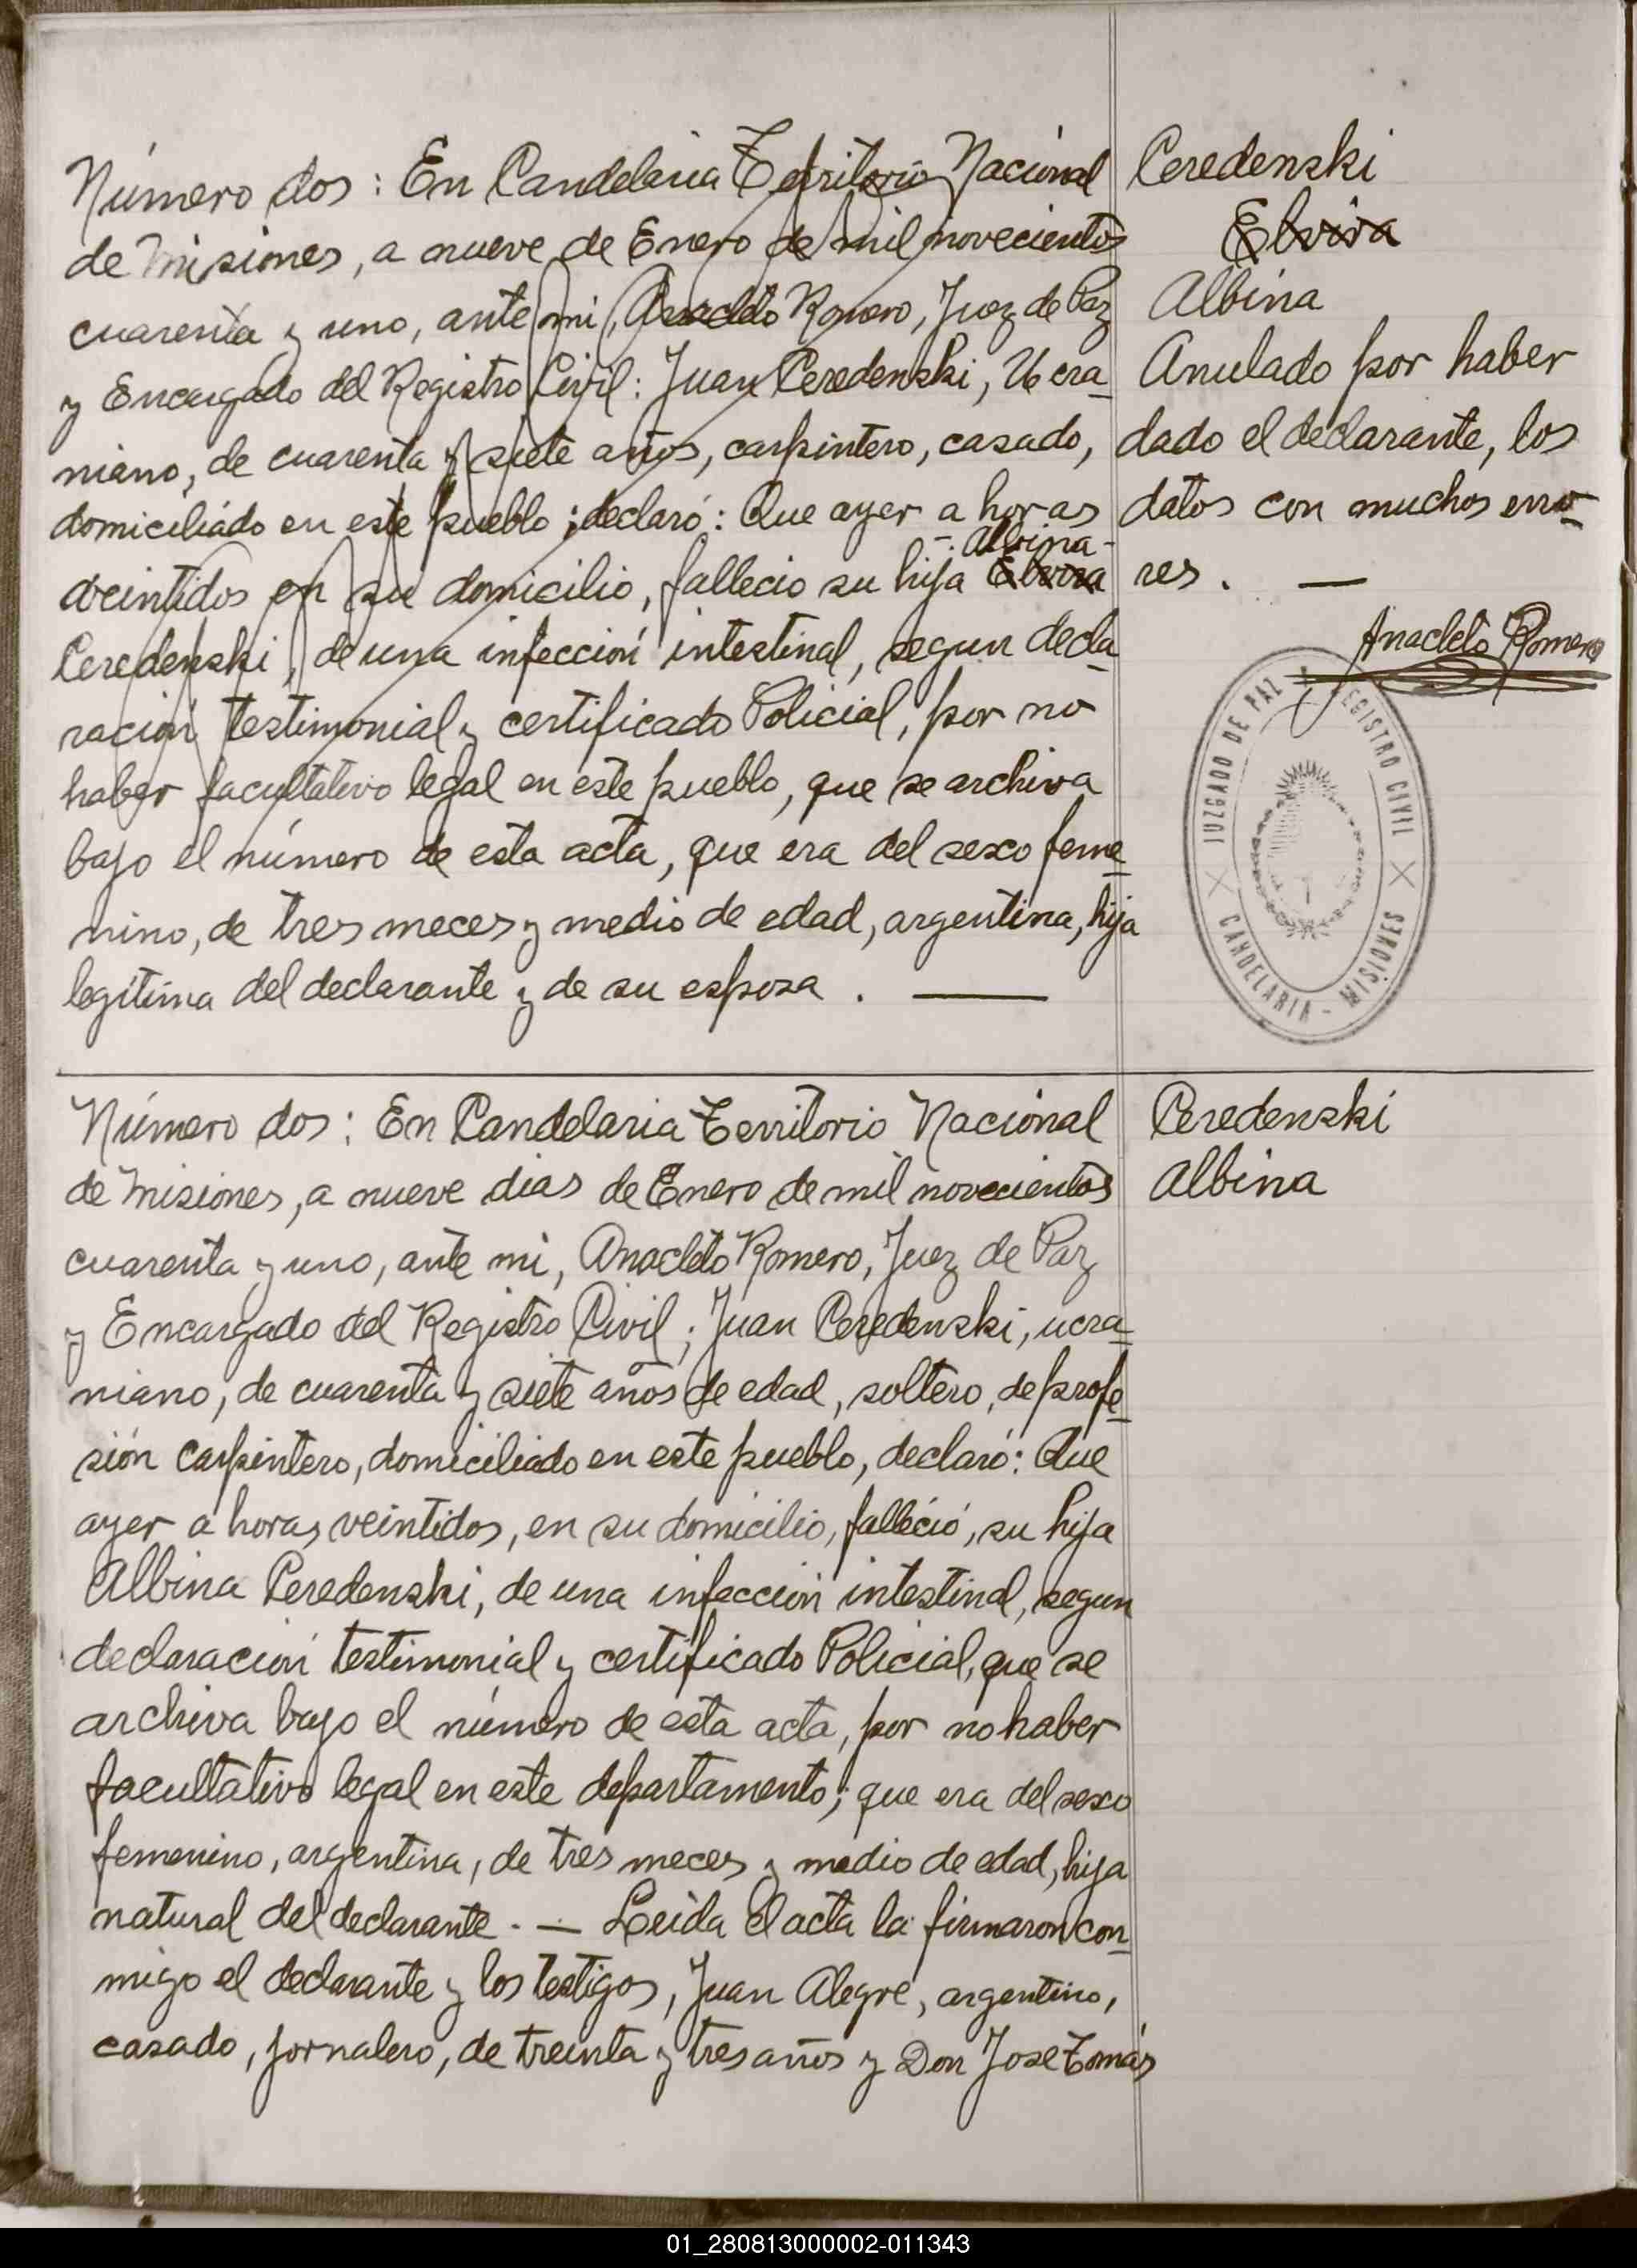 Número dos: En Candelaria Territorio Nacional
de Misiones, a nueve de Enero de mil novecientos
cuarenta y uno, ante mi, Anacleto Romero, Juez de Paz
y Encargado del Registro Civil: Juan Peredenski, Ucra-
niano, de cuarenta y siete años, carpintero, casado,
domiciliado en este pueblo; declaró: Que ayer a horas
-Albina-
veintidos en su domicilio, fallecio su hija Elvira
Peredenski, de una infección intestinal, segun decla-
ración testimonial y certificado Policial, por no
haber facultativo legal en este pueblo, que se archiva
bajo el número de esta acta, que era del sexo feme-
nino, de tres meces y medio de edad, argentina, hija
legítima del declarante y de su esposa. —
Peredenski
Elvira
Albina
Anulado por haber
dado el declarante, los
datos con muchos erro-
res. —
Anacleto Romero
JUZGADO DE PAZ Y REGISTRO CIVIL
CANDELARIA - MISIONES
Número dos: En Candelaria Territorio Nacional
de Misiones, a nueve dias de Enero de mil novecientos
cuarenta y uno, ante mi, Anacleto Romero, Juez de Paz
y Encargado del Registro Civil; Juan Peredenski, ucra-
niano, de cuarenta y siete años de edad, soltero, de profe-
sión carpintero, domiciliado en este pueblo, declaró: Que
ayer a horas veintidos, en su domicilio, falleció, su hija
Albina Peredenski, de una infección intestinal, segun
declaración testimonial y certificado Policial, que se
archiva bajo el número de esta acta, por no haber
facultativo legal en este departamento; que era del sexo
femenino, argentina, de tres meces y medio de edad, hija
natural del declarante. — Leida el acta la firmaron con-
migo el declarante y los testigos, Juan Alegre, argentino,
casado, jornalero, de treinta y tres años y Don Jose Tomás
Peredenski
Albina
01_280813000002-011343